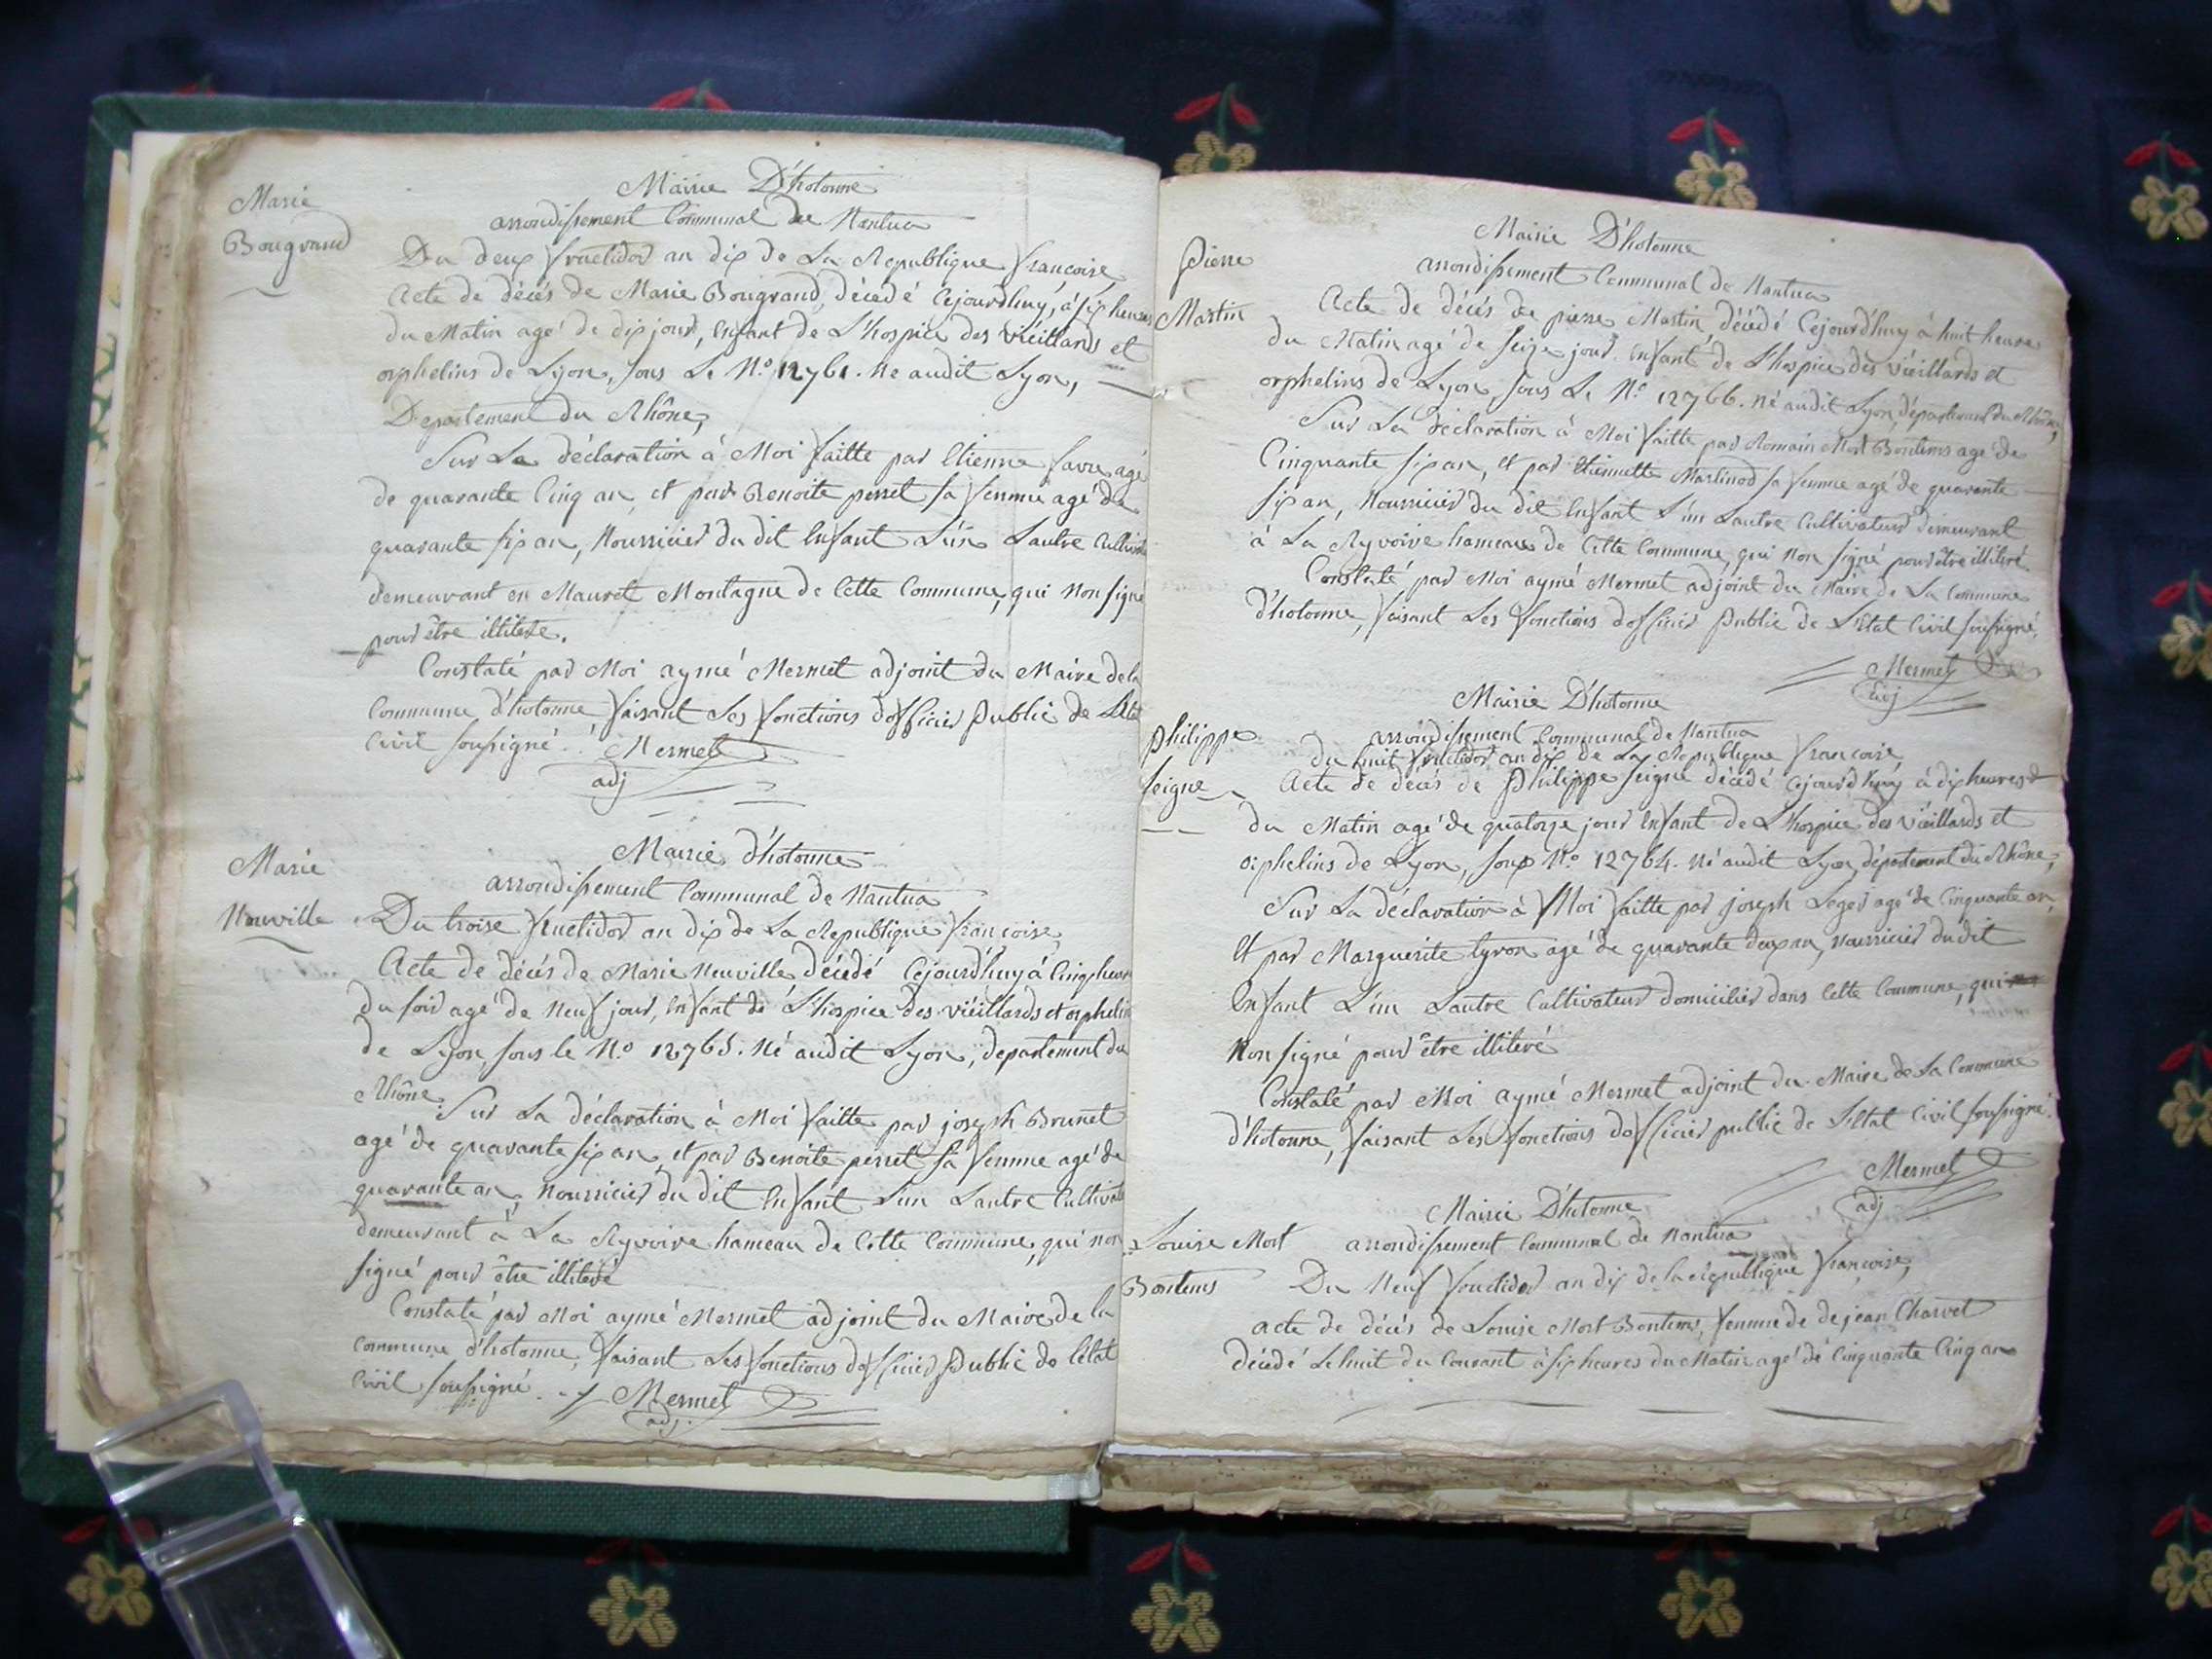 Marie
Bougrand
Mairie D'hotonne
arrondissement Communal de Nantua
Du deux fructidor an dix de La Republique francoise
Acte de décés de Marie Bougrand, décedé Cejourdhuy, à six heures
du Matin agé de dix jour, Enfant de L'hospice des viéillards et
orphelins de Lyon, sous Le N.o 12761. Né audit Lyon,
Departement du Rhône,
Sur La déclaration à Moi faitte par Etienne favre agé
de quarante Cinq an, et par Benoite perret sa femme agé de
quarante six an, Nourricier du dit Enfant L'un Lautre Cultivat
demeurant en Mauret Montagne de Cette Commune, qui Non signé
pour être illiteré.
Constaté par Moi aymé Mermet adjoint du Maire de la
Commune d'hotonne, faisant Les fonctions dofficier Public de L'état
Civil soussigné. Mermet
adj
Marie
Neuville
Mairie d'hotonne
arrondissement Communal de Nantua
Du troise fructidor an dix de La Republique francoise
Acte de décés de Marie Neuville décedé Cejourdhuy à Cinq heure
du soir agé de Neuf jour, Enfant de L'hospice des viéillards et orphelin
de Lyon, sous le N.o 12765. Né audit Lyon, departement du
Rhône.
Sur La déclaration à Moi faitte par joseph Brunet
agé de quarante six an, et par Benoite perret sa femme agé de
quarante an, Nourricier du dit Enfant L'un Lautre Cultivat
demeurant à La Ryvoire hameau de Cette Commune, qui non
signé pour être illiteré
Constaté par Moi aymé Mermet adjoint du Maire de la
commune d'hotonne, faisant Les fonctions dofficier Public de L'état
Civil soussigné. Mermet
adj.
Pierre
Martin
Mairie D'hotonne
arrondissement Communal de Nantua
Acte de décés de pierre Martin, décédé Cejourdhuy à huit heure
du Matin agé de seize jour. Enfant de L'hospice des viéillards et
orphelins de Lyon, sous Le N.o 12766. Né audit Lyon, département du Rhône,
Sur La déclaration à Moi faitte par Romain Mort Bontems agé de
Cinquante six an, et par Etiennette Martinod sa femme agé de quarante
six an, Nourricier du dit Enfant L'un Lautre Cultivateur demeurant
à La Ryvoire hameau de Cette Commune, qui non signé pour être illiteré.
Constaté par Moi aymé Mermet adjoint du Maire de La Commune
d'hotonne, faisant Les fonctions dofficier Public de L'Etat Civil soussigné.
Mermet
adj
Philippe
seigne
Mairie D'hotonne
arrondissement Communal de Nantua
du huit fructidor an dix de La Republique francoise
Acte de décés de Philippe seigne décédé Cejourdhuy à dix heures
du Matin agé de quatorze jour Enfant de L'hospice des viéillards et
orphelins de Lyon, sous N.o 12764. Né audit Lyon, département du Rhône,
Sur La déclaration à Moi faitte par joseph Leger agé de Cinquante an,
et par Marguerite tyron agé de quarante deux an, nourricier du dit
Enfant L'un Lautre Cultivateur domicilier dans Cette Commune, qui
Non signé pour être illiteré
Constaté par Moi aymé Mermet adjoint du Maire de La Commune
d'hotonne, faisant Les fonctions dofficier public de L'Etat Civil soussigné.
Mermet
adj
Louise Mort
Bontems
Mairie D'hotonne
arrondissement Communal de Nantua
Du Neuf fructidor an dix de la Republique francoise,
acte de décés de Louise Mort Bontems, femme de dejean Charvet
décédé Le huit du Courant à six heures du Matin agé de Cinquante Cinq an